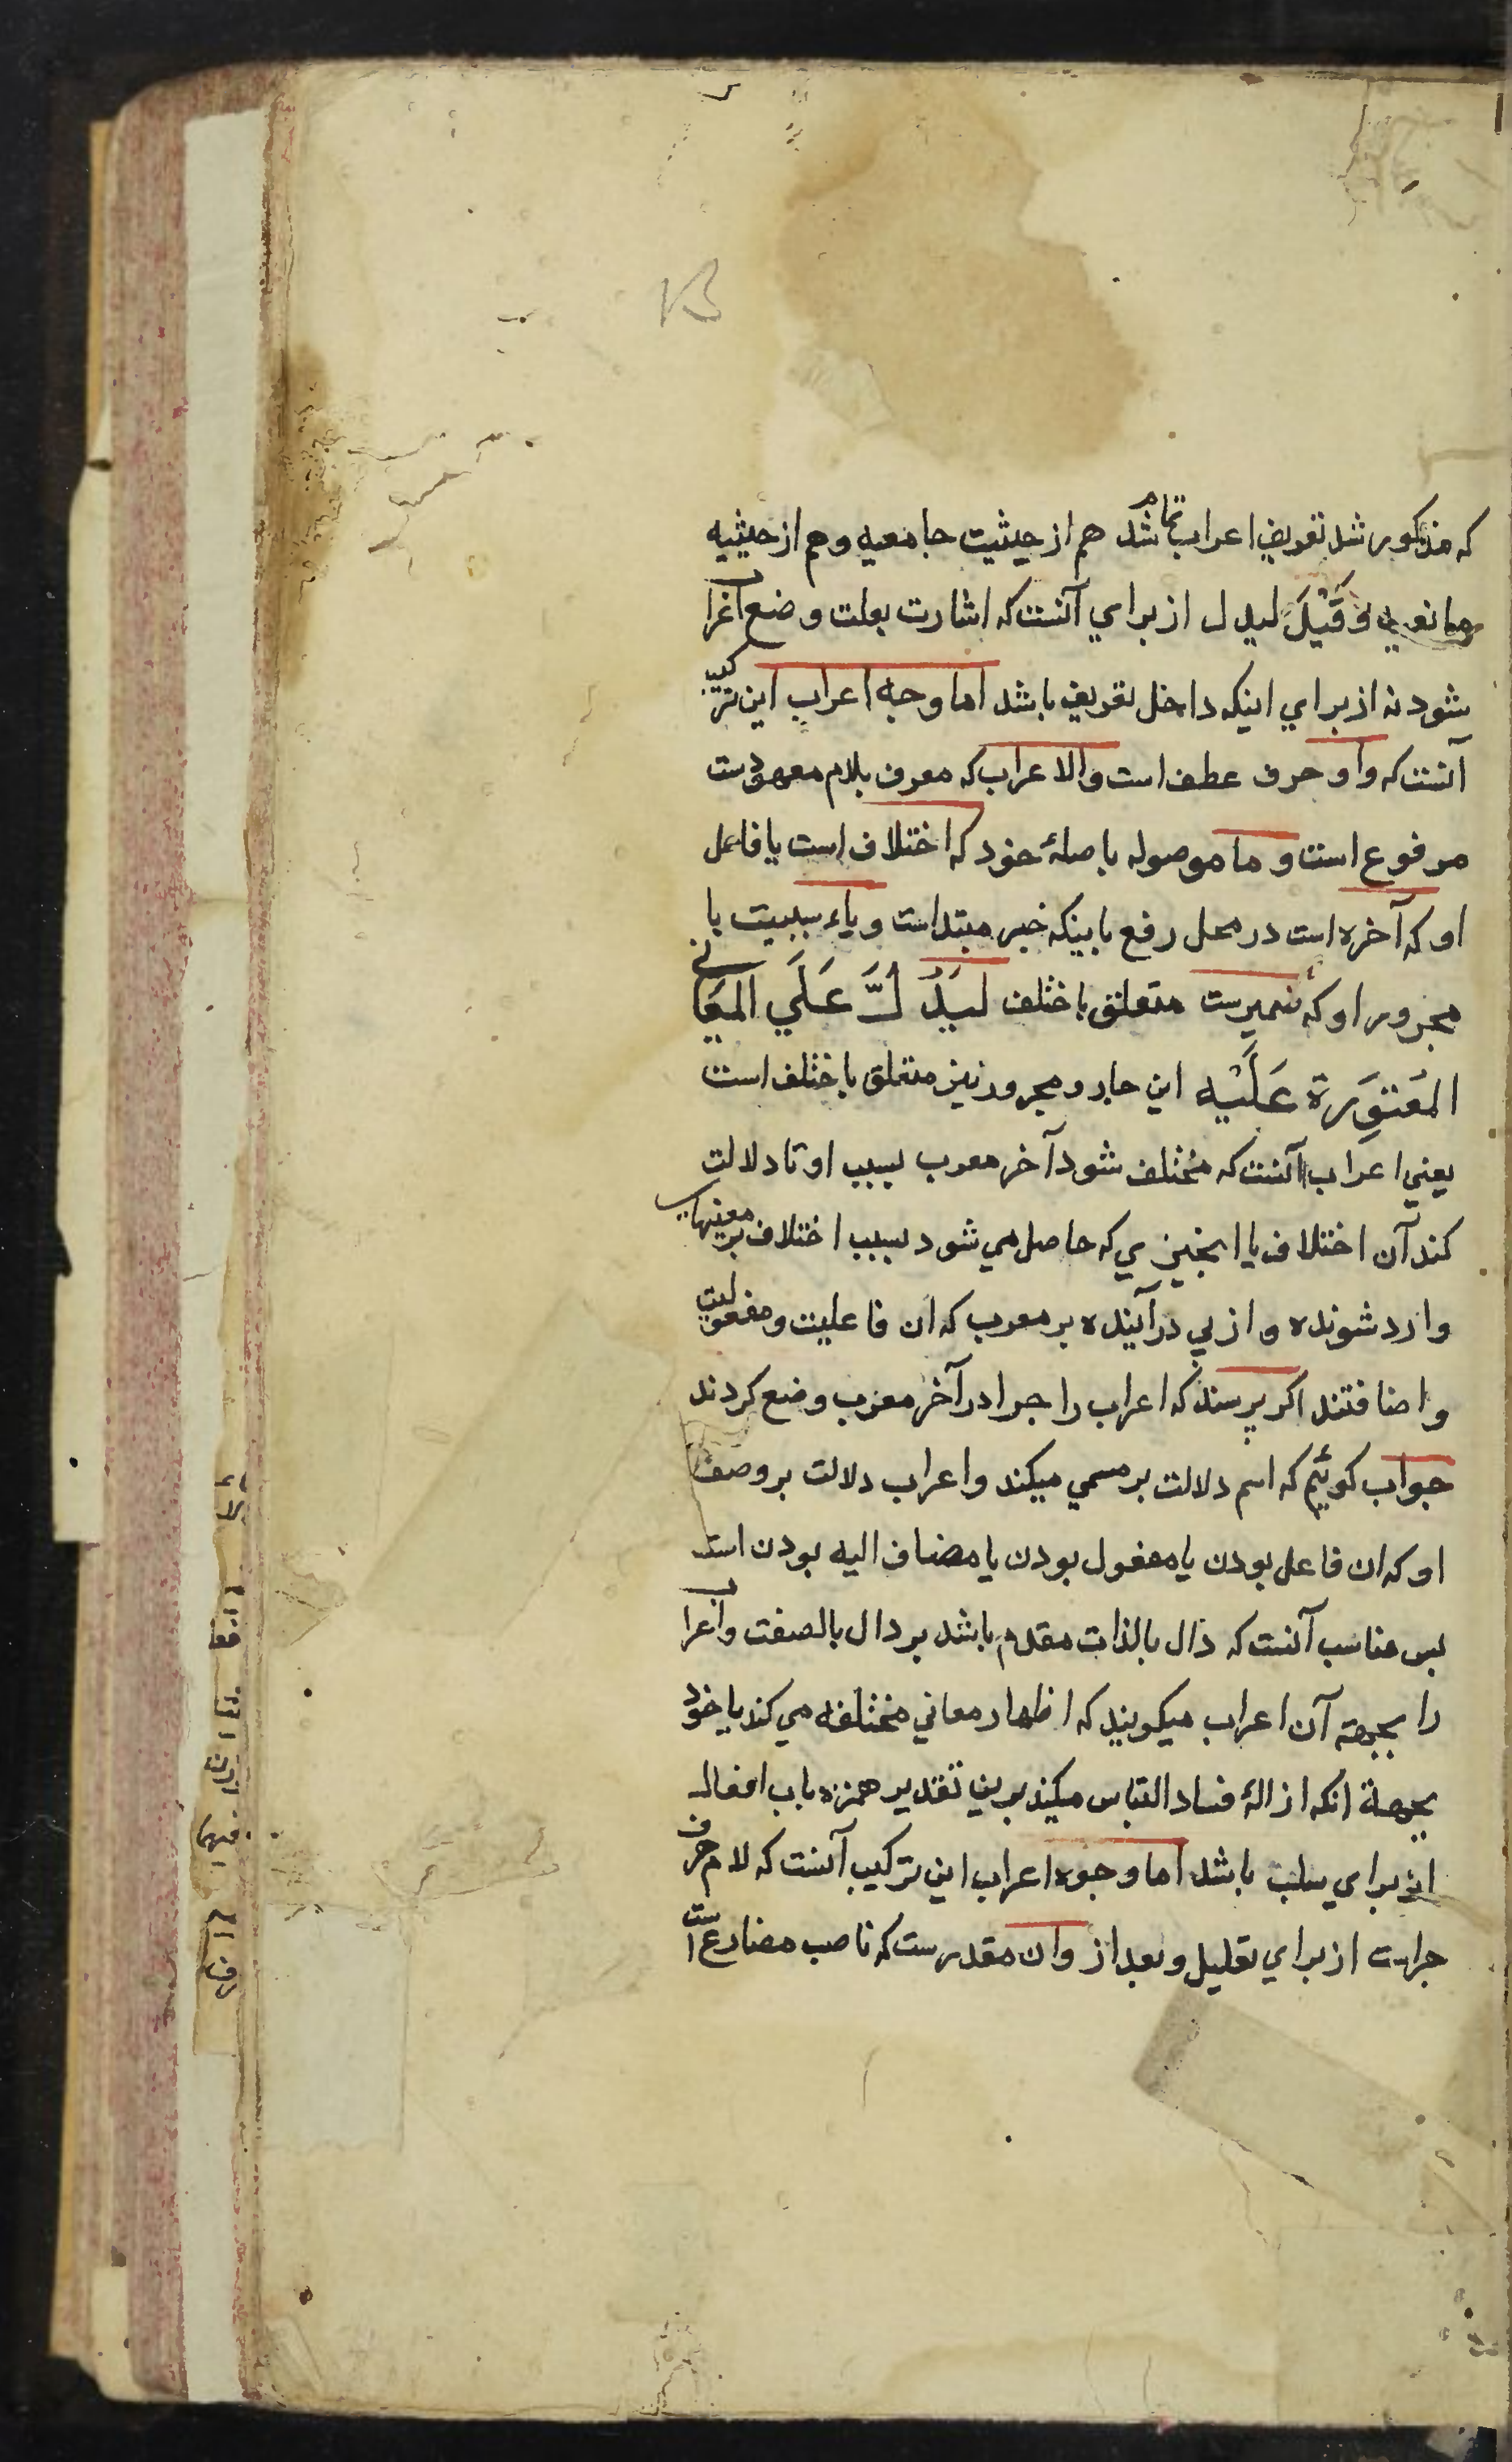 که مذکور شد تعریف اعراب تمام شد هم از حیثیت جامعیه وهم از حیثیه
مانعیه وَقَیْلَ لیدل از برای آنست که اشارت بعلت وضع اعراب
شود نه از برای اینکه داخل تعریف باشد اما وجه اعراب این ترکیب
آنست که واو حرف عطف است والاعراب که معرف بلام معهودست
مرفوع است و ما موصوله باصلهٔ خود که اختلاف است یا فاعل
او که آخره است در محل رفع باینکه خبر مبتداست وباء سببیت با
مجرور او که ضمیرست متعلق باختلف لیَدُلَّ عَلَی المَعَانی
المَعتَوِرة عَلَیْه این جار و مجرور نیز متعلق باختلف است
یعنی اعراب آنست که مختلف شود آخر معرب بسبب او تا دلالت
کند آن اختلاف یا انچیزی که حاصل می شود بسبب اختلاف بر معنیهای
وارد شونده و از پی درآینده بر معرب که ان فاعلیت و مفعولیت
و اضافتند اکر پرسند که اعراب را چرا در آخر معرب وضع کردند
جواب کوئیم که اسم دلالت بر مسمی میکند واعراب دلالت بر وصف
او که ان فاعل بودن یا مفعول بودن یا مضاف الیه بودن است
بس مناسب آنست که دال بالذات مقدم باشد بر دال بالصفت واعراب
را بجهة آن اعراب میکویند که اظهار معانی مختلفه می کند یا خود
بجهة انکه ازالهٔ فساد التباس میکند برین تقدیر همزه باب افعال
از برای سلب باشد اما وجوه اعراب این ترکیب آنست که لام حرف
جراست از برای تعلیل و بعد از وان مقدرست که ناصب مضارع است